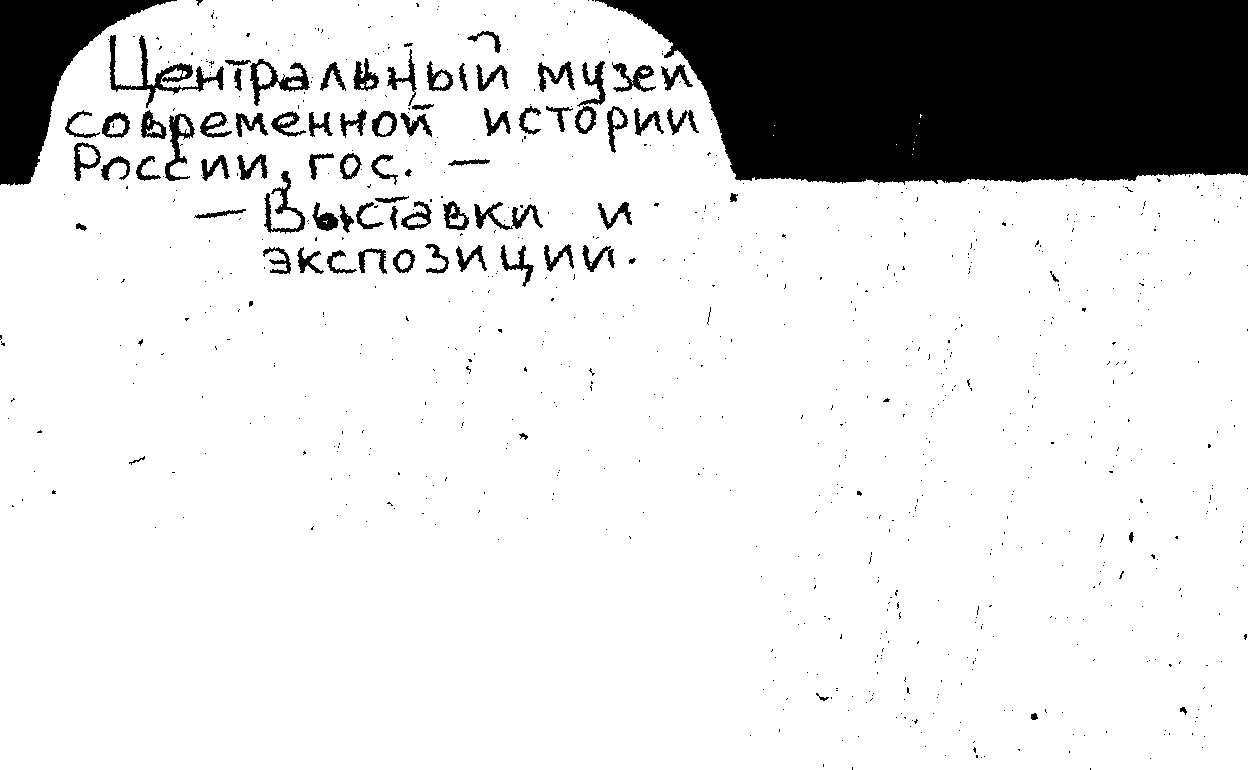 Центральный музей
современной истории
России, гос. —
— Выставки и
экспозиции.